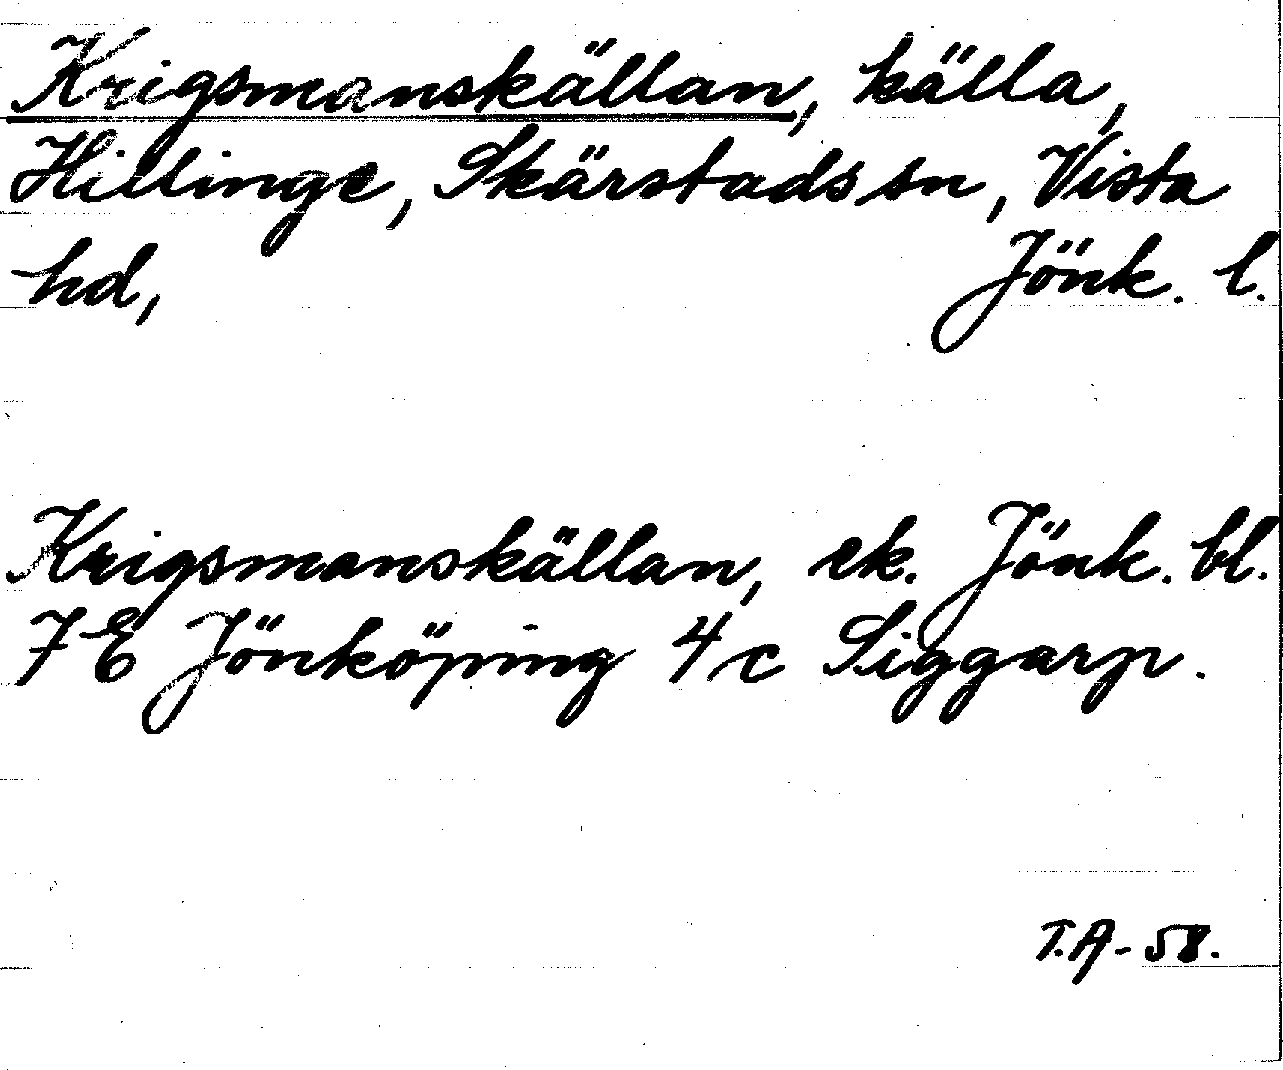 Krigsmanskällan, källa,
Hillinge, Skärstads sn, Vista
hd, Jönk. l.
Krigsmanskällan, ek. Jönk. bl.
7 E Jönköping 4 c Siggarp.
T.A - 58.